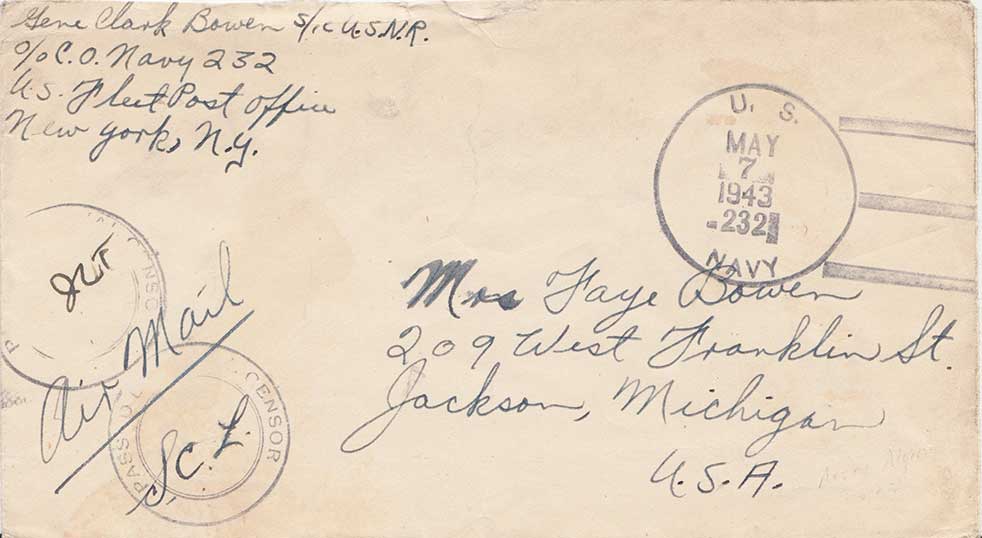 Gene Clark Bowen S/1c U.S.N.R.
c/o C.O. Navy 232
U.S. Fleet Post Office
New York, N.Y.
U. S.
MAY
7
1943
232
NAVY
CENSOR
Air Mail
PASSED
CENSOR
Mrs Faye Bowen
209 West Franklin St.
Jackson, Michigan
U.S.A.